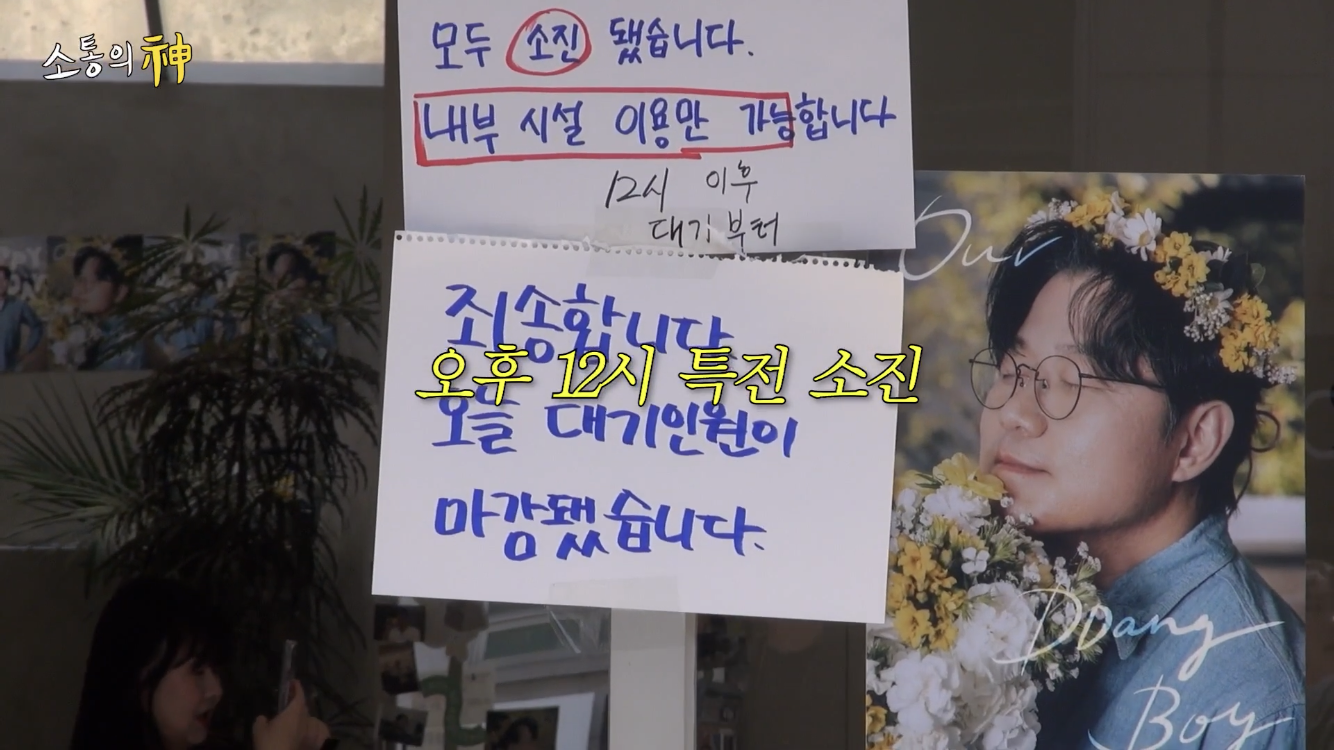 소통의神
모두 소진 됐습니다.
내부 시설 이용만 가능합니다
12시 이후
대기부터
죄송합니다
오후 12시 특전 소진
오늘 대기인원이
마감됐습니다.
Our
DDang
Boy